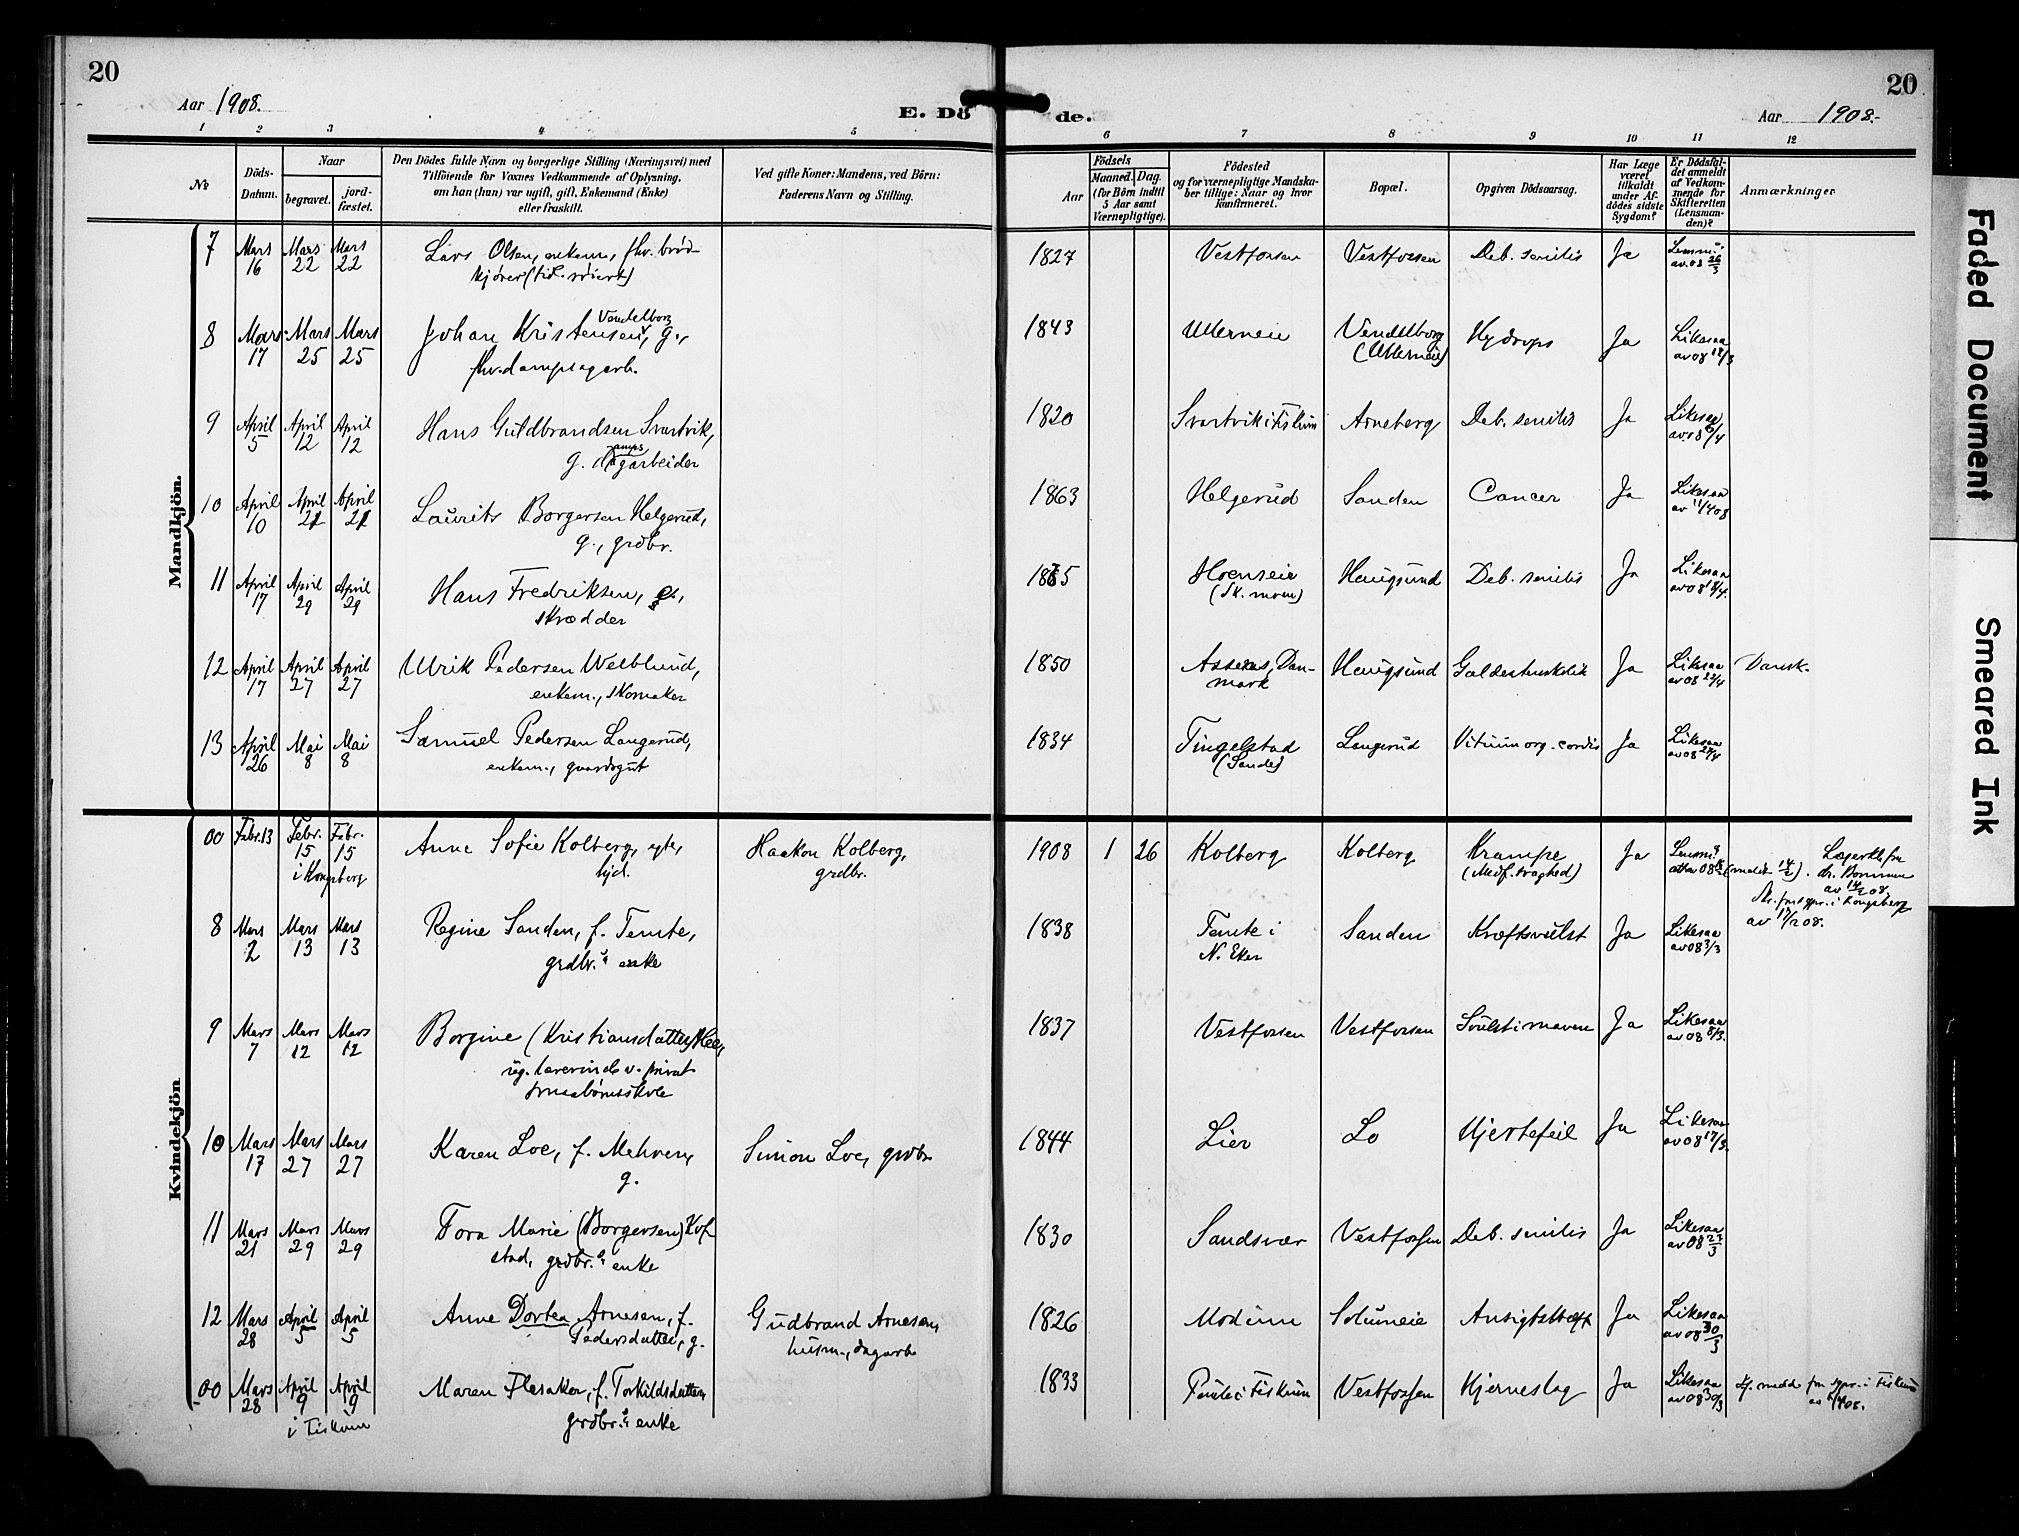 20
Aar 1908.
E. Dö
de.
Aar 1908.
20
1 2 3 4 5 6 7 8 9 10 11 12
No
Döds-
Datum.
Naar
begravet.
jord-
fæstet.
Den Dödes fulde Navn og borgerlige Stilling (Næringsvei) med
Tilföiende for Voxnes Vedkommende af Oplysning,
om han (hun) var ugift, gift, Enkemand (Enke)
eller fraskilt.
Ved gifte Koner: Mandens, ved Börn:
Faderens Navn og Stilling.
Födsels
Aar
Maaned. Dag.
(for Börn indtil
5 Aar samt
Værnepligtige).
Födested
og for værnepligtige Mandska-
ber tillige: Naar og hvor
konfirmeret.
Bopæl.
Opgiven Dödsaarsag.
Har Læge
været
tilkaldt
under Af-
dödes sidste
Sygdom?
Er Dödsfal-
det anmeldt
af Vedkom-
mende for
Skifteretten
(Lensman-
den)?
Anmærkninger.
Mandkjön.
7 Mars 16 Mars 22 Mars 22 Lars Olsen, enkem., fhv. brød-
kjører
1827 Vestfossen Vestfossen Deb. senilis Ja Lensm. av 08 26/3
8 Mars 17 Mars 25 Mars 25 Johan Kristensen Vendelborg, g.,
fhv. dampsagarb.
1843 Ullerneie Vendelborg (Ullerneie) Hydrops Ja Likesaa av 08 18/3
9 April 5 April 12 April 12 Hans Guldbrandsen Svartvik,
g. dampsagarbeider
1820 Svartvik i Fiskum Arneberg Deb. senilis Ja Likesaa av 08 6/4
10 April 10 April 21 April 21 Laurits Borgersen Helgerud,
g., grdbr.
1863 Helgerud Sanden Cancer Ja Likesaa av 11/4 08
11 April 17 April 29 April 29 Hans Fredriksen,
skrædder
Hoenseie Haugsund Deb. senilis Ja Likesaa av 08 18/4.
12 April 17 April 27 April 27 Ulrik Pedersen Welblund,
enkem., skomaker
1850 Assens, Dan-
mark Haugsund Galdestenskolik Ja Likesaa av 08 22/4 Dansk.
13 April 26 Mai 8 Mai 8 Samuel Pedersen Langerud,
enkem., gaardsgut
1834 Tingelstad (Sande) Langerud Vitium org. cordis Ja Likesaa av 08 27/4
Kvindekjön
00 Febr. 13 Febr. 15 Febr. 15 Anne Sofie Kolberg, egte,
hjd.
i Kongsberg
Haakon Kolberg,
grdbr.
1908 1 26 Kolberg Kolberg Krampe
(Medf. svaghed) Ja Lensm. (meldt 14/2). Lægeatt. fra
dr. Bommen
av 14/2 08.
av 17/2 08.
8 Mars 2 Mars 13 Mars 13 Regine Sanden, f. Temte,
grdbr. enke
1838 Temte i
N. Eker Sanden Kræftsvulst Ja Likesaa av 08 3/3
9 Mars 7 Mars 12 Mars 12 Borgine (Kristiansdatter) Moe,
ug. lærerinde v. privat
smaabørnsskole
1837 Vestfossen Vestfossen Svulst i maven Ja Likesaa av 08 8/3.
10 Mars 17 Mars 27 Mars 27 Karen Loe, f. Mehren,
g.
Simon Loe, grdbr.
1844 Lier Lo Hjertefeil Ja Likesaa av 08 17/3.
11 Mars 21 Mars 29 Mars 29 Tora Marie (Borgersen) Kof-
stad, grdbr. enke
1830 Sandsvær Vestfossen Deb. senilis Ja Likesaa av 08 23/3
12 Mars 28 April 5 April 5 Anne Dortea Arnesen, f.
Pedersdatter, g.
Gudbrand Arnesen,
husm., dagarb.
1826 Modum Solumeie Ansigtskræft Ja Likesaa av 08 30/3
00 Mars 28 April 9 April 9 Maren Flesaker, f. Torkildsdatter,
grdbr. enke
i Fiskum
1833 Teigen i Fiskum Vestfossen Hjerneslag Ja Likesaa av 08 30/3 fra spr. i Fiskum
Faded Document
Smeared Ink